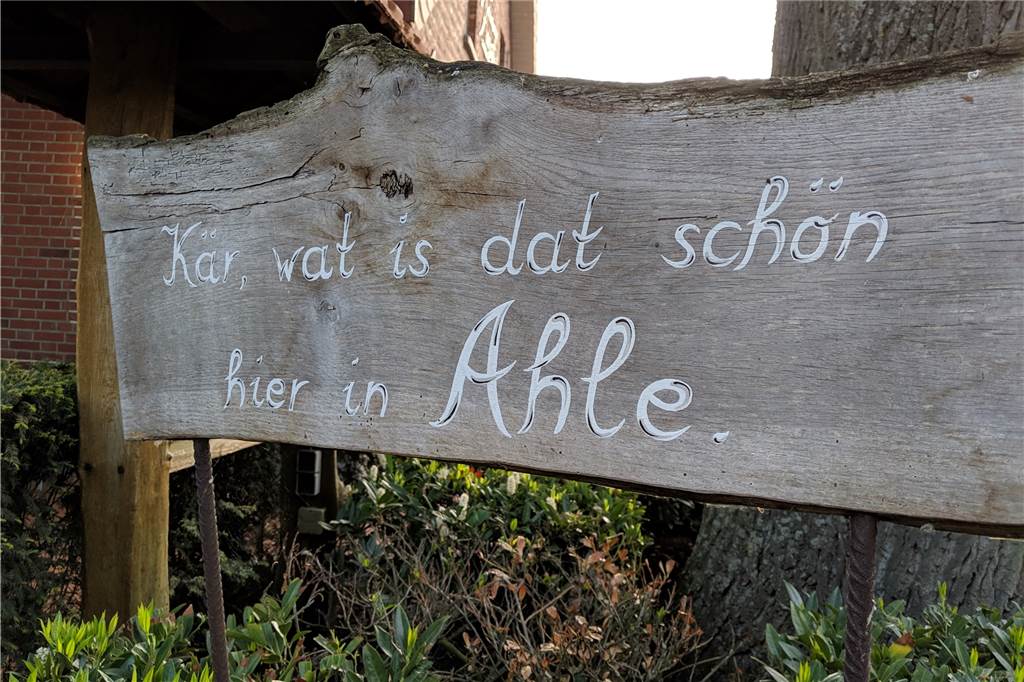 Kär, wat is dat schön
hier in Ahle.